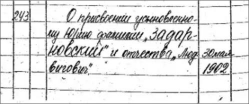 243 О присвоении усыновленно-
му Юрию фамилии „Задар-
новский" и отчества „Люд-
вигович". 30 мая
1902